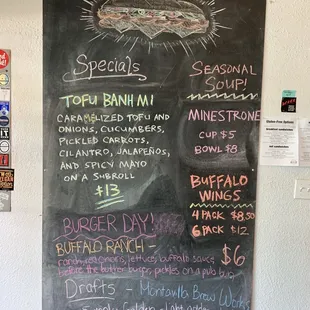 Specials
TOFU BANH MI
CARAMELIZED TOFU AND
ONIONS, CUCUMBERS,
PICKLED CARROTS,
CILANTRO, JALAPEÑOS,
AND SPICY MAYO
ON A SUBROLL
$13
SEASONAL
SOUP!
MINESTRONE
CUP $5
BOWL $8
BUFFALO
WINGS
4 PACK $8.50
6 PACK $12
BURGER DAY!
BUFFALO RANCH -
ranch, red onions, lettuce, buffalo sauce,
before the butcher burger, pickles on a pub bun
$6
Drafts - Montavilla Brew Works